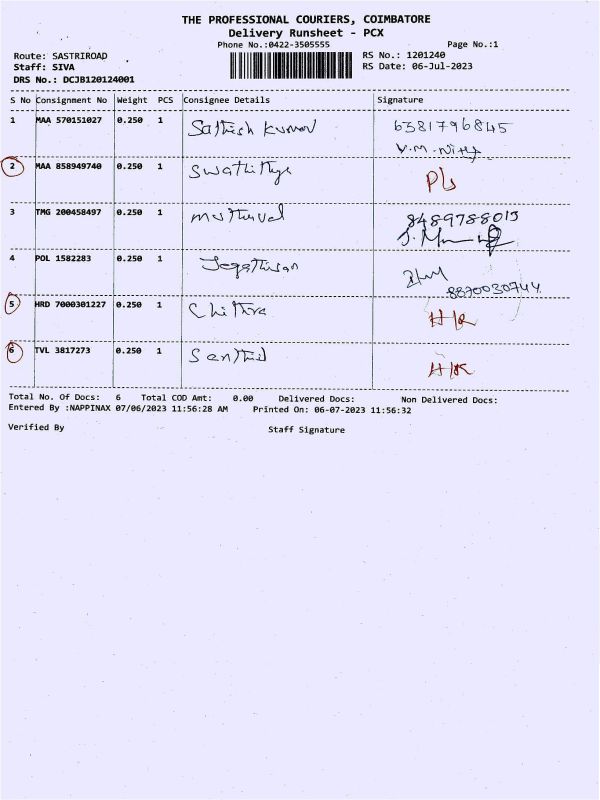 THE PROFESSIONAL COURIERS, COIMBATORE
Delivery Runsheet - PCX
Phone No.:0422-3505555 Page No.:1
Route: SASTRIROAD RS No.: 1201240
Staff: SIVA RS Date: 06-Jul-2023
DRS No.: DCJB120124001
S No Consignment No Weight PCS Consignee Details Signature
1 MAA 570151027 0.250 1 Sathish Kumar 6381796845
V.M.
2 MAA 858949740 0.250 1 Swathithya
3 TMG 200458497 0.250 1 Muthuvel 8489788015
4 POL 1582283 0.250 1 Jegathisan
8870030744
5 HRD 7000301227 0.250 1 Chithra H/R
6 TVL 3817273 0.250 1 Senthil H/R
Total No. Of Docs: 6 Total COD Amt: 0.00 Delivered Docs: Non Delivered Docs:
Entered By :NAPPINAX 07/06/2023 11:56:28 AM Printed On: 06-07-2023 11:56:32
Verified By Staff Signature